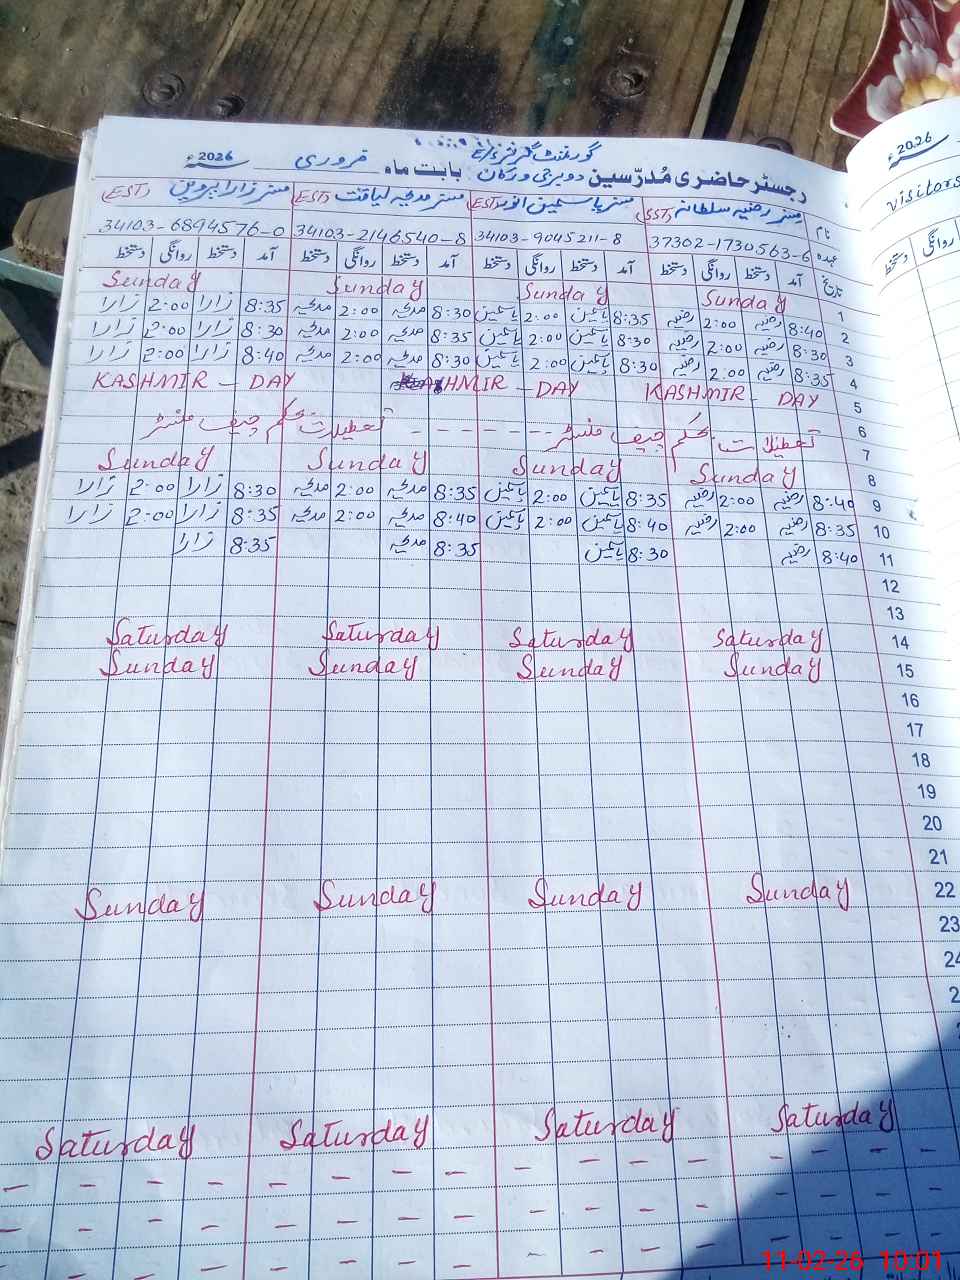 گورنمنٹ گرلز
رجسٹر حاضری مُدرّسین دوبرجی ورکاں بابت ماہ فروری 2026ء
نام مسز رضیہ سلطانہ (SST) مسز یاسمین انور (EST) مسز مدیحہ لیاقت (EST) مسز زارا پروین (EST)
عہدہ 37302-1730563-6 34103-9045211-8 34103-2146540-8 34103-6894576-0
تاریخ آمد دستخط روانگی دستخط آمد دستخط روانگی دستخط آمد دستخط روانگی دستخط آمد دستخط روانگی دستخط
1 Sunday Sunday Sunday Sunday
2 8:40 رضیہ 2:00 رضیہ 8:35 یاسمین 2:00 یاسمین 8:30 مدیحہ 2:00 مدیحہ 8:35 زارا 2:00 زارا
3 8:30 رضیہ 2:00 رضیہ 8:30 یاسمین 2:00 یاسمین 8:35 مدیحہ 2:00 مدیحہ 8:30 زارا 2:00 زارا
4 8:35 رضیہ 2:00 رضیہ 8:30 یاسمین 2:00 یاسمین 8:30 مدیحہ 2:00 مدیحہ 8:40 زارا 2:00 زارا
5 KASHMIR - DAY KASHMIR - DAY KASHMIR - DAY
6 تعطیلات بحکم چیف منسٹر - - - - - - تعطیلات بحکم چیف منسٹر
7
8 Sunday Sunday Sunday Sunday
9 8:40 رضیہ 2:00 رضیہ 8:35 یاسمین 2:00 یاسمین 8:35 مدیحہ 2:00 مدیحہ 8:30 زارا 2:00 زارا
10 8:35 رضیہ 2:00 رضیہ 8:40 یاسمین 2:00 یاسمین 8:40 مدیحہ 2:00 مدیحہ 8:35 زارا 2:00 زارا
11 8:40 رضیہ 8:30 یاسمین 8:35 مدیحہ 8:35 زارا
12
13
14 Saturday Saturday Saturday Saturday
15 Sunday Sunday Sunday Sunday
16
17
18
19
20
21
22 Sunday Sunday Sunday Sunday
23
24
2
Saturday Saturday Saturday Saturday
2026ء
visitors
روانگی دستخط
11-02-26 10:01